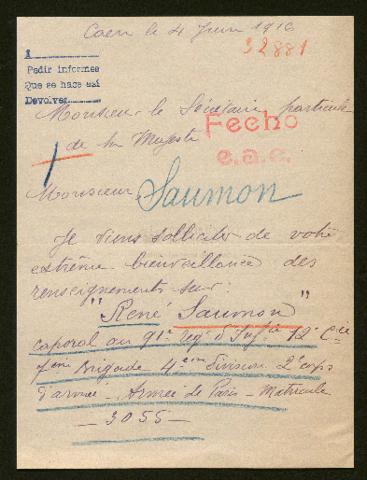 Caen le 4 Juin 1916
32881
1
Pedir informes
Que se hace así
Devolver
Monsieur le Secrétaire particulier
de Sa Majesté
Fecho
e.a.c.
Monsieur,
Saumon
Je viens solliciter de votre
extrême bienveillance des
renseignements sur :
"René Saumon"
caporal au 91e Reg. d'Inf.rie 12e Cie
7ème Brigade 4ème division 2e corps
d'armée - Armée de Paris - Matricule
- 3055 -